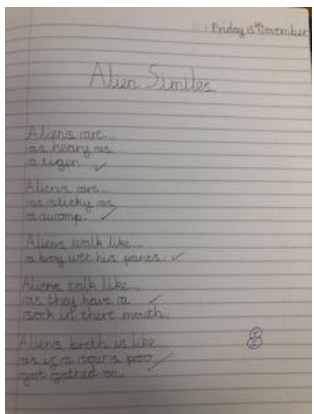 Friday 15th November
Alien Similes
Aliens are...
as heavy as
a tiger.
Aliens are...
as sticky as
a swamp.
Aliens walk like...
a boy wet his pants.
Aliens talk like...
as they have a
sock in there mouth.
Aliens breth is like
as if a cow's poo
got on.